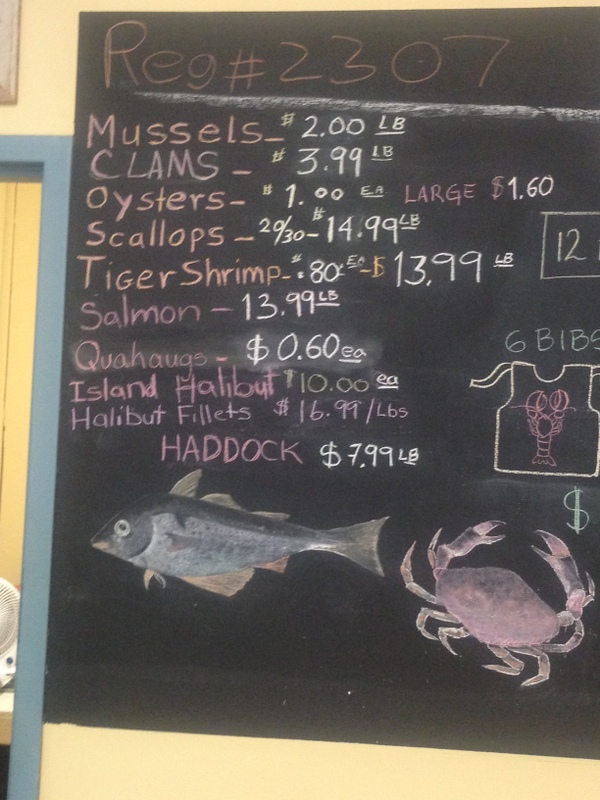 Reg # 2307
Mussels - $ 2.00 LB
CLAMS - $ 3.99 LB
Oysters - $ 1.00 EA LARGE $1.60
Scallops - 20/30 - $14.99 LB
Tiger Shrimp - $.80 EA - $13.99 LB
12
Salmon - 13.99 LB
6 BIBS
Quahaugs - $0.60 ea
Island Halibut $10.00 ea
Halibut Fillets $16.99/Lbs
HADDOCK $7.99 LB
$